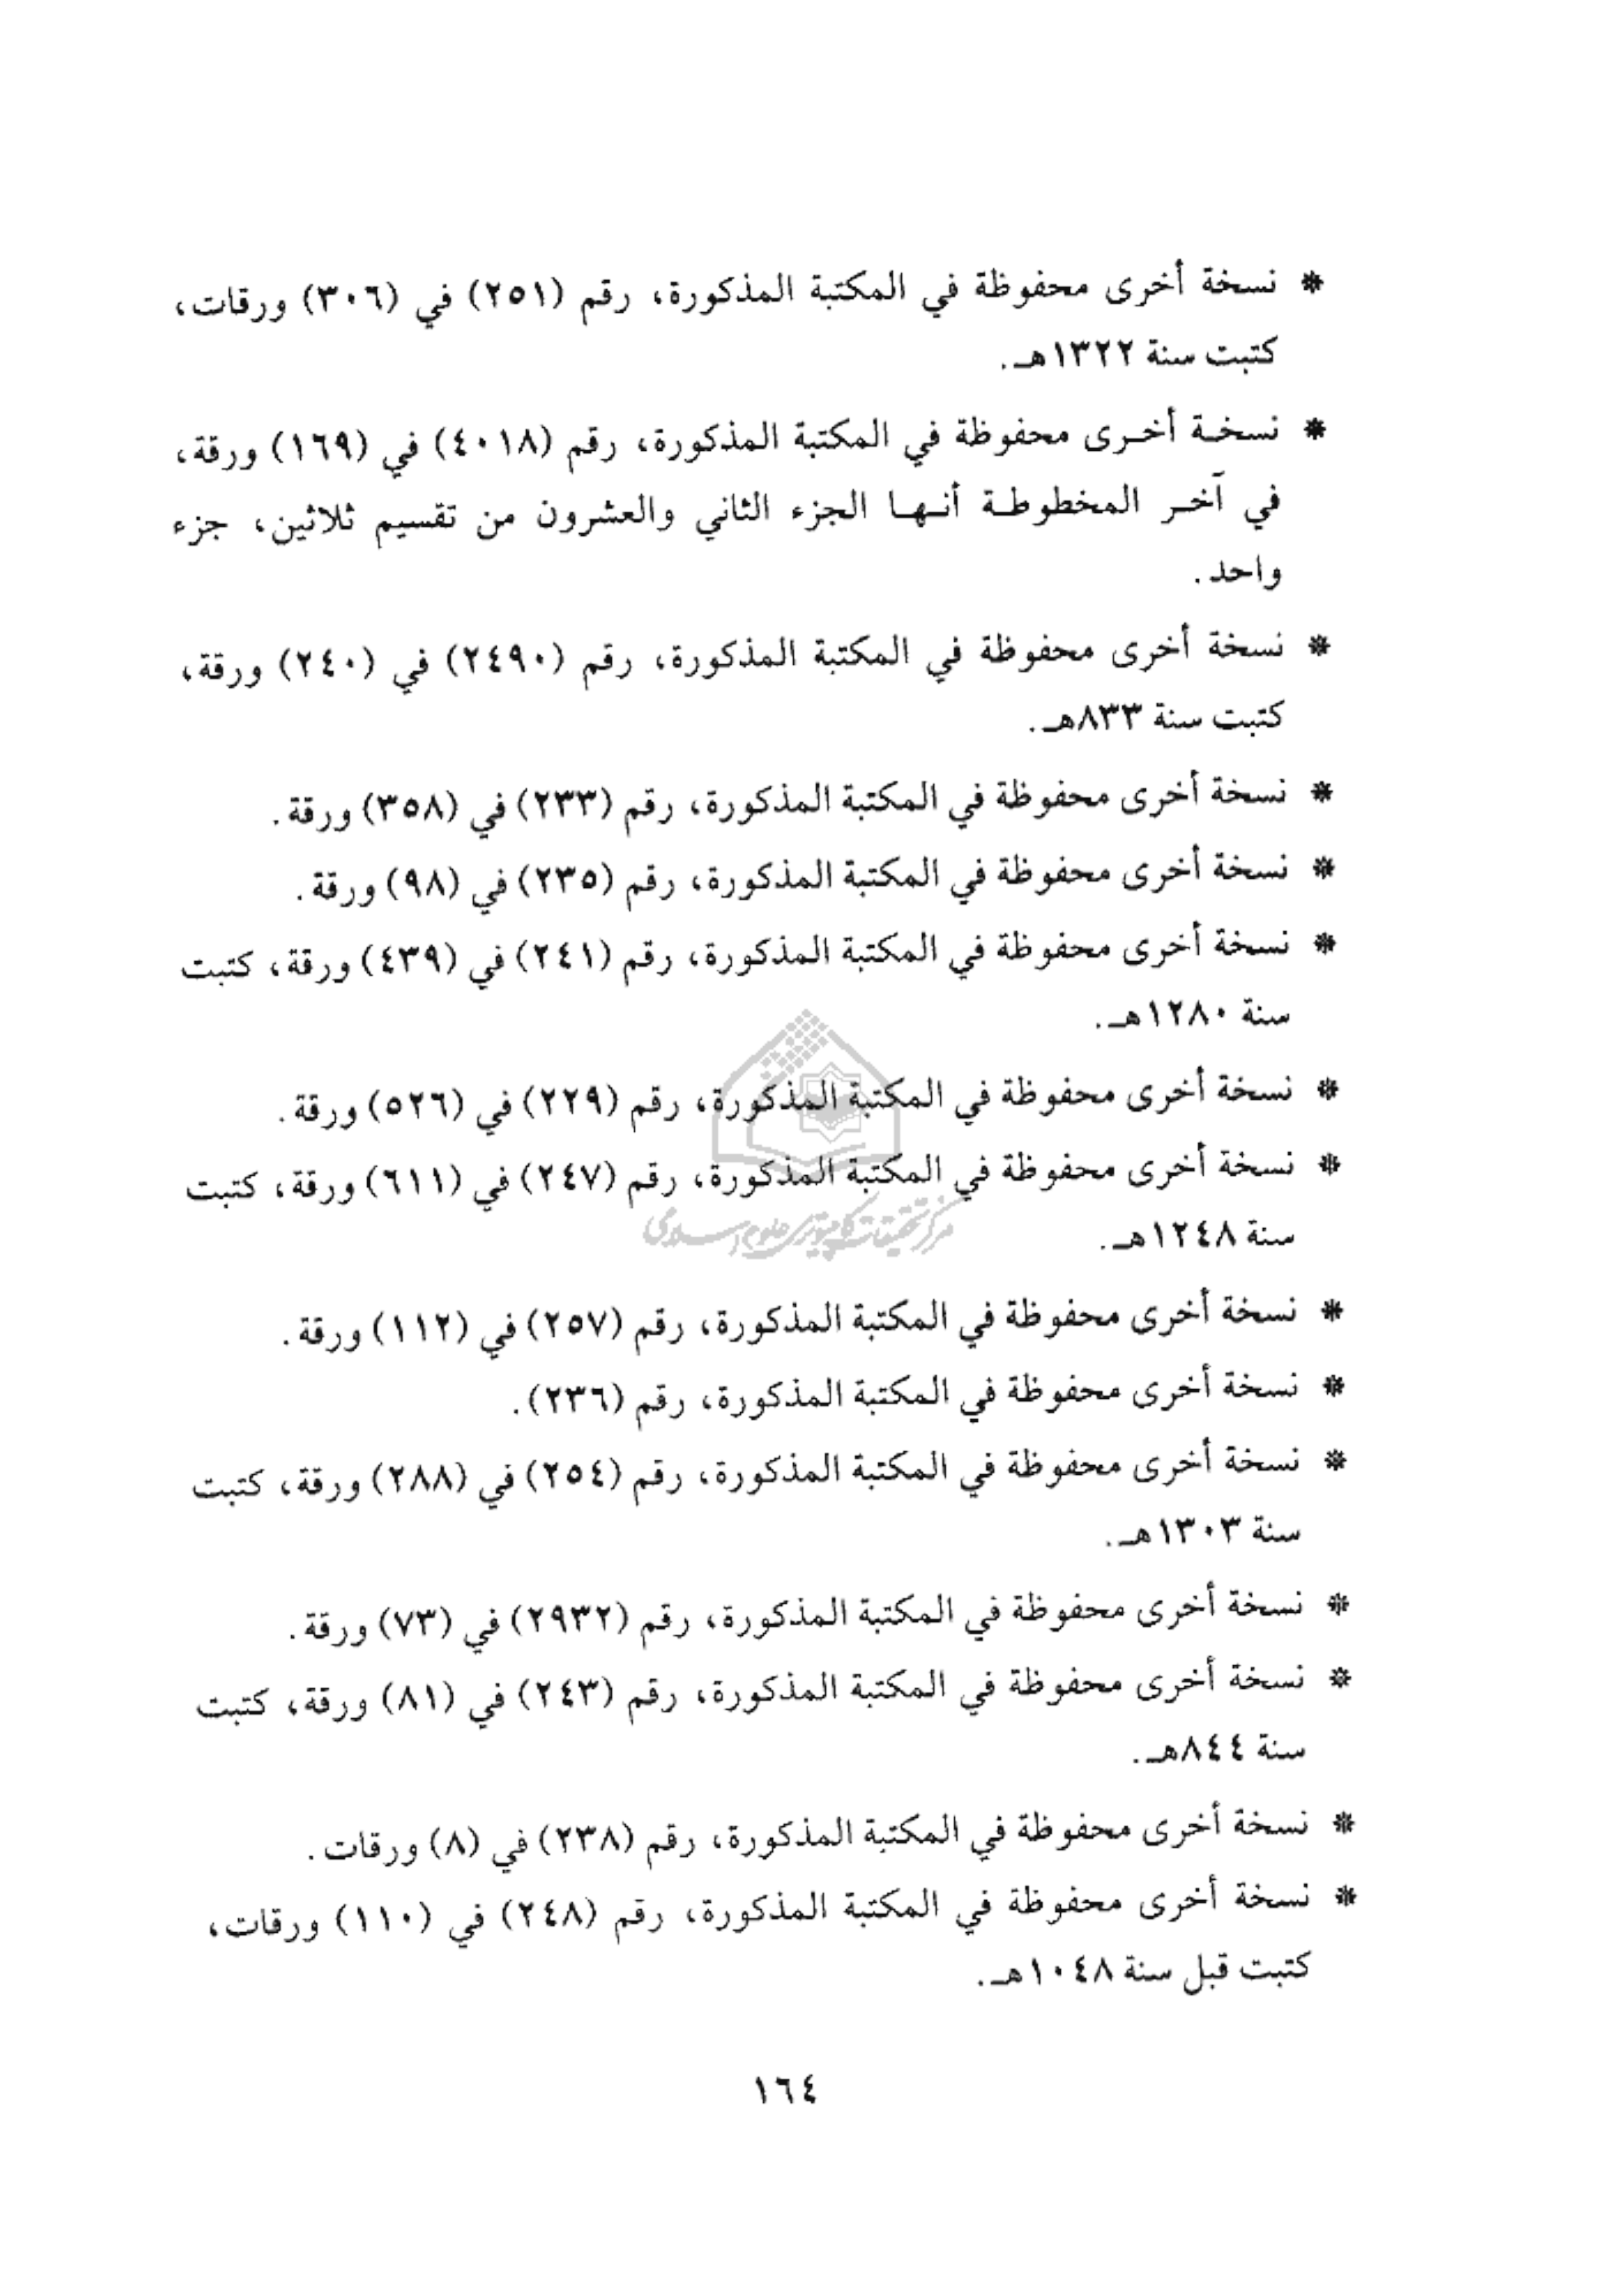 * نسخة أخرى محفوظة في المكتبة المذكورة، رقم (٢٥١) في (٣٠٦) ورقات،
كتبت سنة ١٣٢٢هـ.
* نسخة أخرى محفوظة في المكتبة المذكورة، رقم (٤٠١٨) في (١٦٩) ورقة،
في آخر المخطوطة أنها الجزء الثاني والعشرون من تقسيم ثلاثين، جزء
واحد.
* نسخة أخرى محفوظة في المكتبة المذكورة، رقم (٢٤٩٠) في (٢٤٠) ورقة،
كتبت سنة ٨٣٣هـ.
* نسخة أخرى محفوظة في المكتبة المذكورة، رقم (٢٣٣) في (٣٥٨) ورقة.
* نسخة أخرى محفوظة في المكتبة المذكورة، رقم (٢٣٥) في (٩٨) ورقة.
* نسخة أخرى محفوظة في المكتبة المذكورة، رقم (٢٤١) في (٤٣٩) ورقة، كتبت
سنة ١٢٨٠هـ.
* نسخة أخرى محفوظة في المكتبة المذكورة، رقم (٢٢٩) في (٥٢٦) ورقة.
* نسخة أخرى محفوظة في المكتبة المذكورة، رقم (٢٤٧) في (٦١١) ورقة، كتبت
مرکز تحقیقات کامپیوتری علوم اسلامی
سنة ١٢٤٨هـ.
* نسخة أخرى محفوظة في المكتبة المذكورة، رقم (٢٥٧) في (١١٢) ورقة.
* نسخة أخرى محفوظة في المكتبة المذكورة، رقم (٢٣٦).
* نسخة أخرى محفوظة في المكتبة المذكورة، رقم (٢٥٤) في (٢٨٨) ورقة، كتبت
سنة ١٣٠٣هـ.
* نسخة أخرى محفوظة في المكتبة المذكورة، رقم (٢٩٣٢) في (٧٣) ورقة.
* نسخة أخرى محفوظة في المكتبة المذكورة، رقم (٢٤٣) في (٨١) ورقة، كتبت
سنة ٨٤٤هـ.
* نسخة أخرى محفوظة في المكتبة المذكورة، رقم (٢٣٨) في (٨) ورقات.
* نسخة أخرى محفوظة في المكتبة المذكورة، رقم (٢٤٨) في (١١٠) ورقات،
كتبت قبل سنة ١٠٤٨هـ.
١٦٤